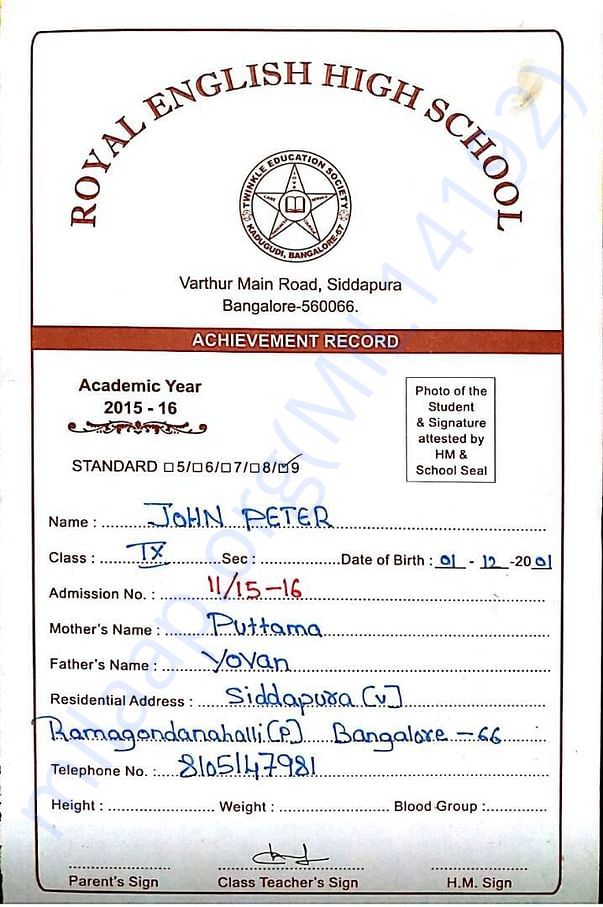 ROYAL ENGLISH HIGH SCHOOL
TWINKLE EDUCATION SOCIETY
KADUGUDI, BANGALORE-67
Varthur Main Road, Siddapura
Bangalore-560066.
ACHIEVEMENT RECORD
Academic Year
2015 - 16
Photo of the
Student
& Signature
attested by
HM &
School Seal
STANDARD □5/□6/□7/□8/☑9
Name : JOHN PETER
Class : IX Sec : Date of Birth : 01 - 12 -2001
Admission No. : 11/15-16
Mother's Name : Puttama
Father's Name : Yovan
Residential Address : Siddapura (V)
Ramagondanahalli (P) Bangalore - 66
Telephone No. : 8105147981
Height : Weight : Blood Group :
Parent's Sign Class Teacher's Sign H.M. Sign
milaap.org(MIL14192)